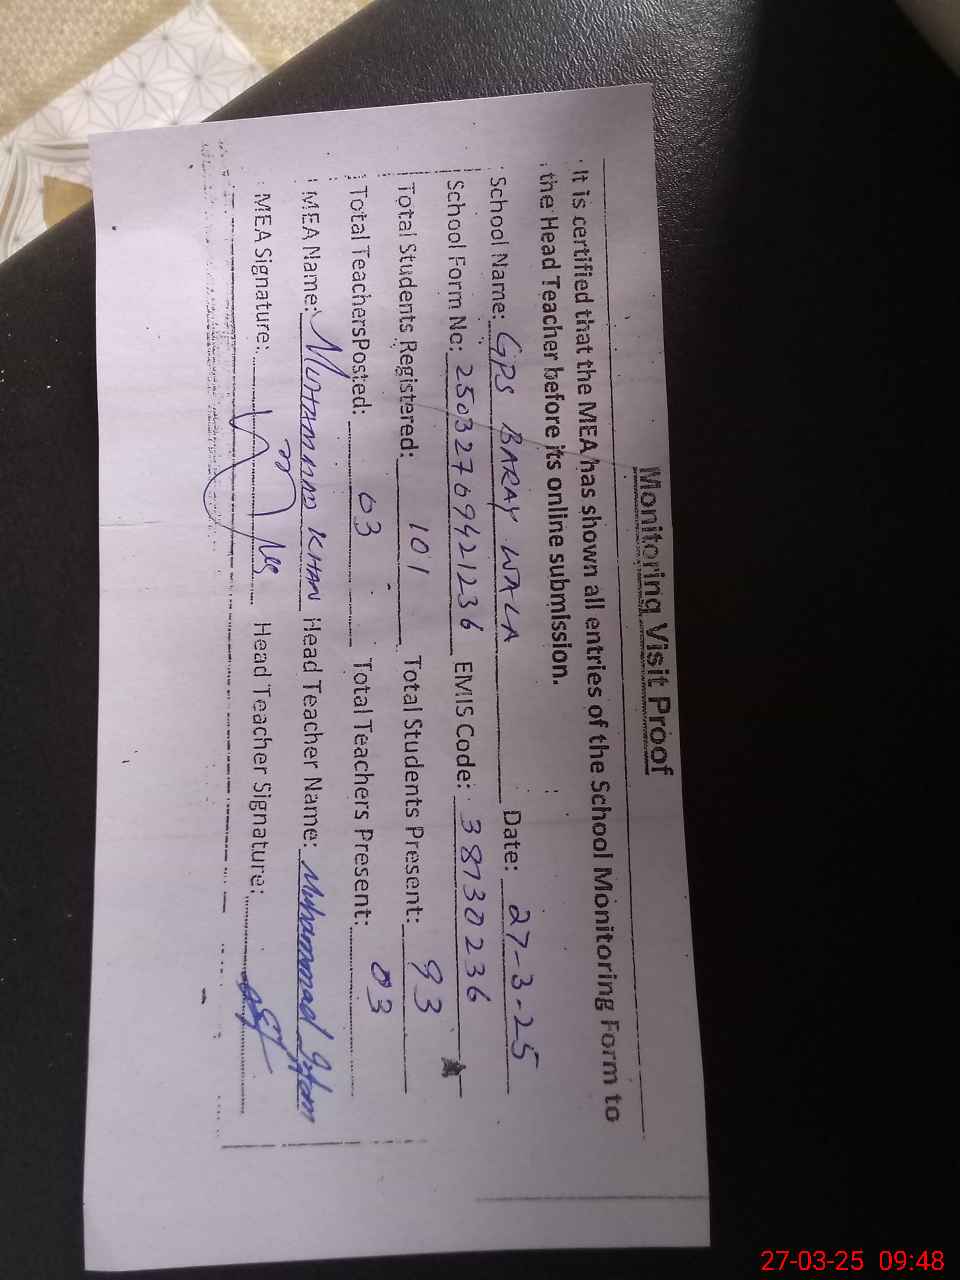 Monitoring Visit Proof
It is certified that the MEA has shown all entries of the School Monitoring Form to
the Head Teacher before its online submission.
School Name: GPS BARAY WALA Date: 27-3-25
School Form No: 25032769421236 EMIS Code: 38730236
Total Students Registered: 101 Total Students Present: 93
Total TeachersPosted: 03 Total Teachers Present: 03
MEA Name: MUHAMMAD KHAN Head Teacher Name: Muhammad
MEA Signature: Head Teacher Signature:
27-03-25 09:48